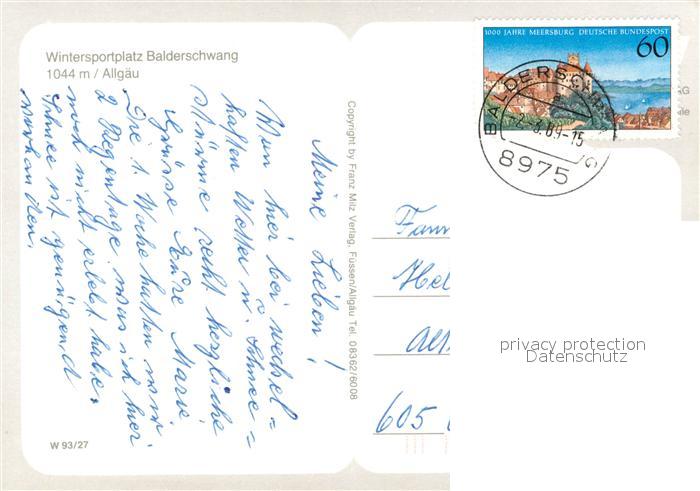 Wintersportplatz Balderschwang
1044 m / Allgäu
Meine Lieben!
Nun hier bei wechsel=
haften Wetter u. Schnee=
stürme recht herzliche
Grüsse Eure Marie
Die 1. Woche hatten wir
2 Regentage, was ich hier
noch nicht erlebt habe,
Schnee ist genügend
vorhanden.
W 93/27
Copyright by Franz Milz Verlag, Füssen/Allgäu Tel. 08362/6008
1000 JAHRE MEERSBURG DEUTSCHE BUNDESPOST
60
BALDERSCHWANG
8975
Fam
Hel
605
privacy protection
Datenschutz